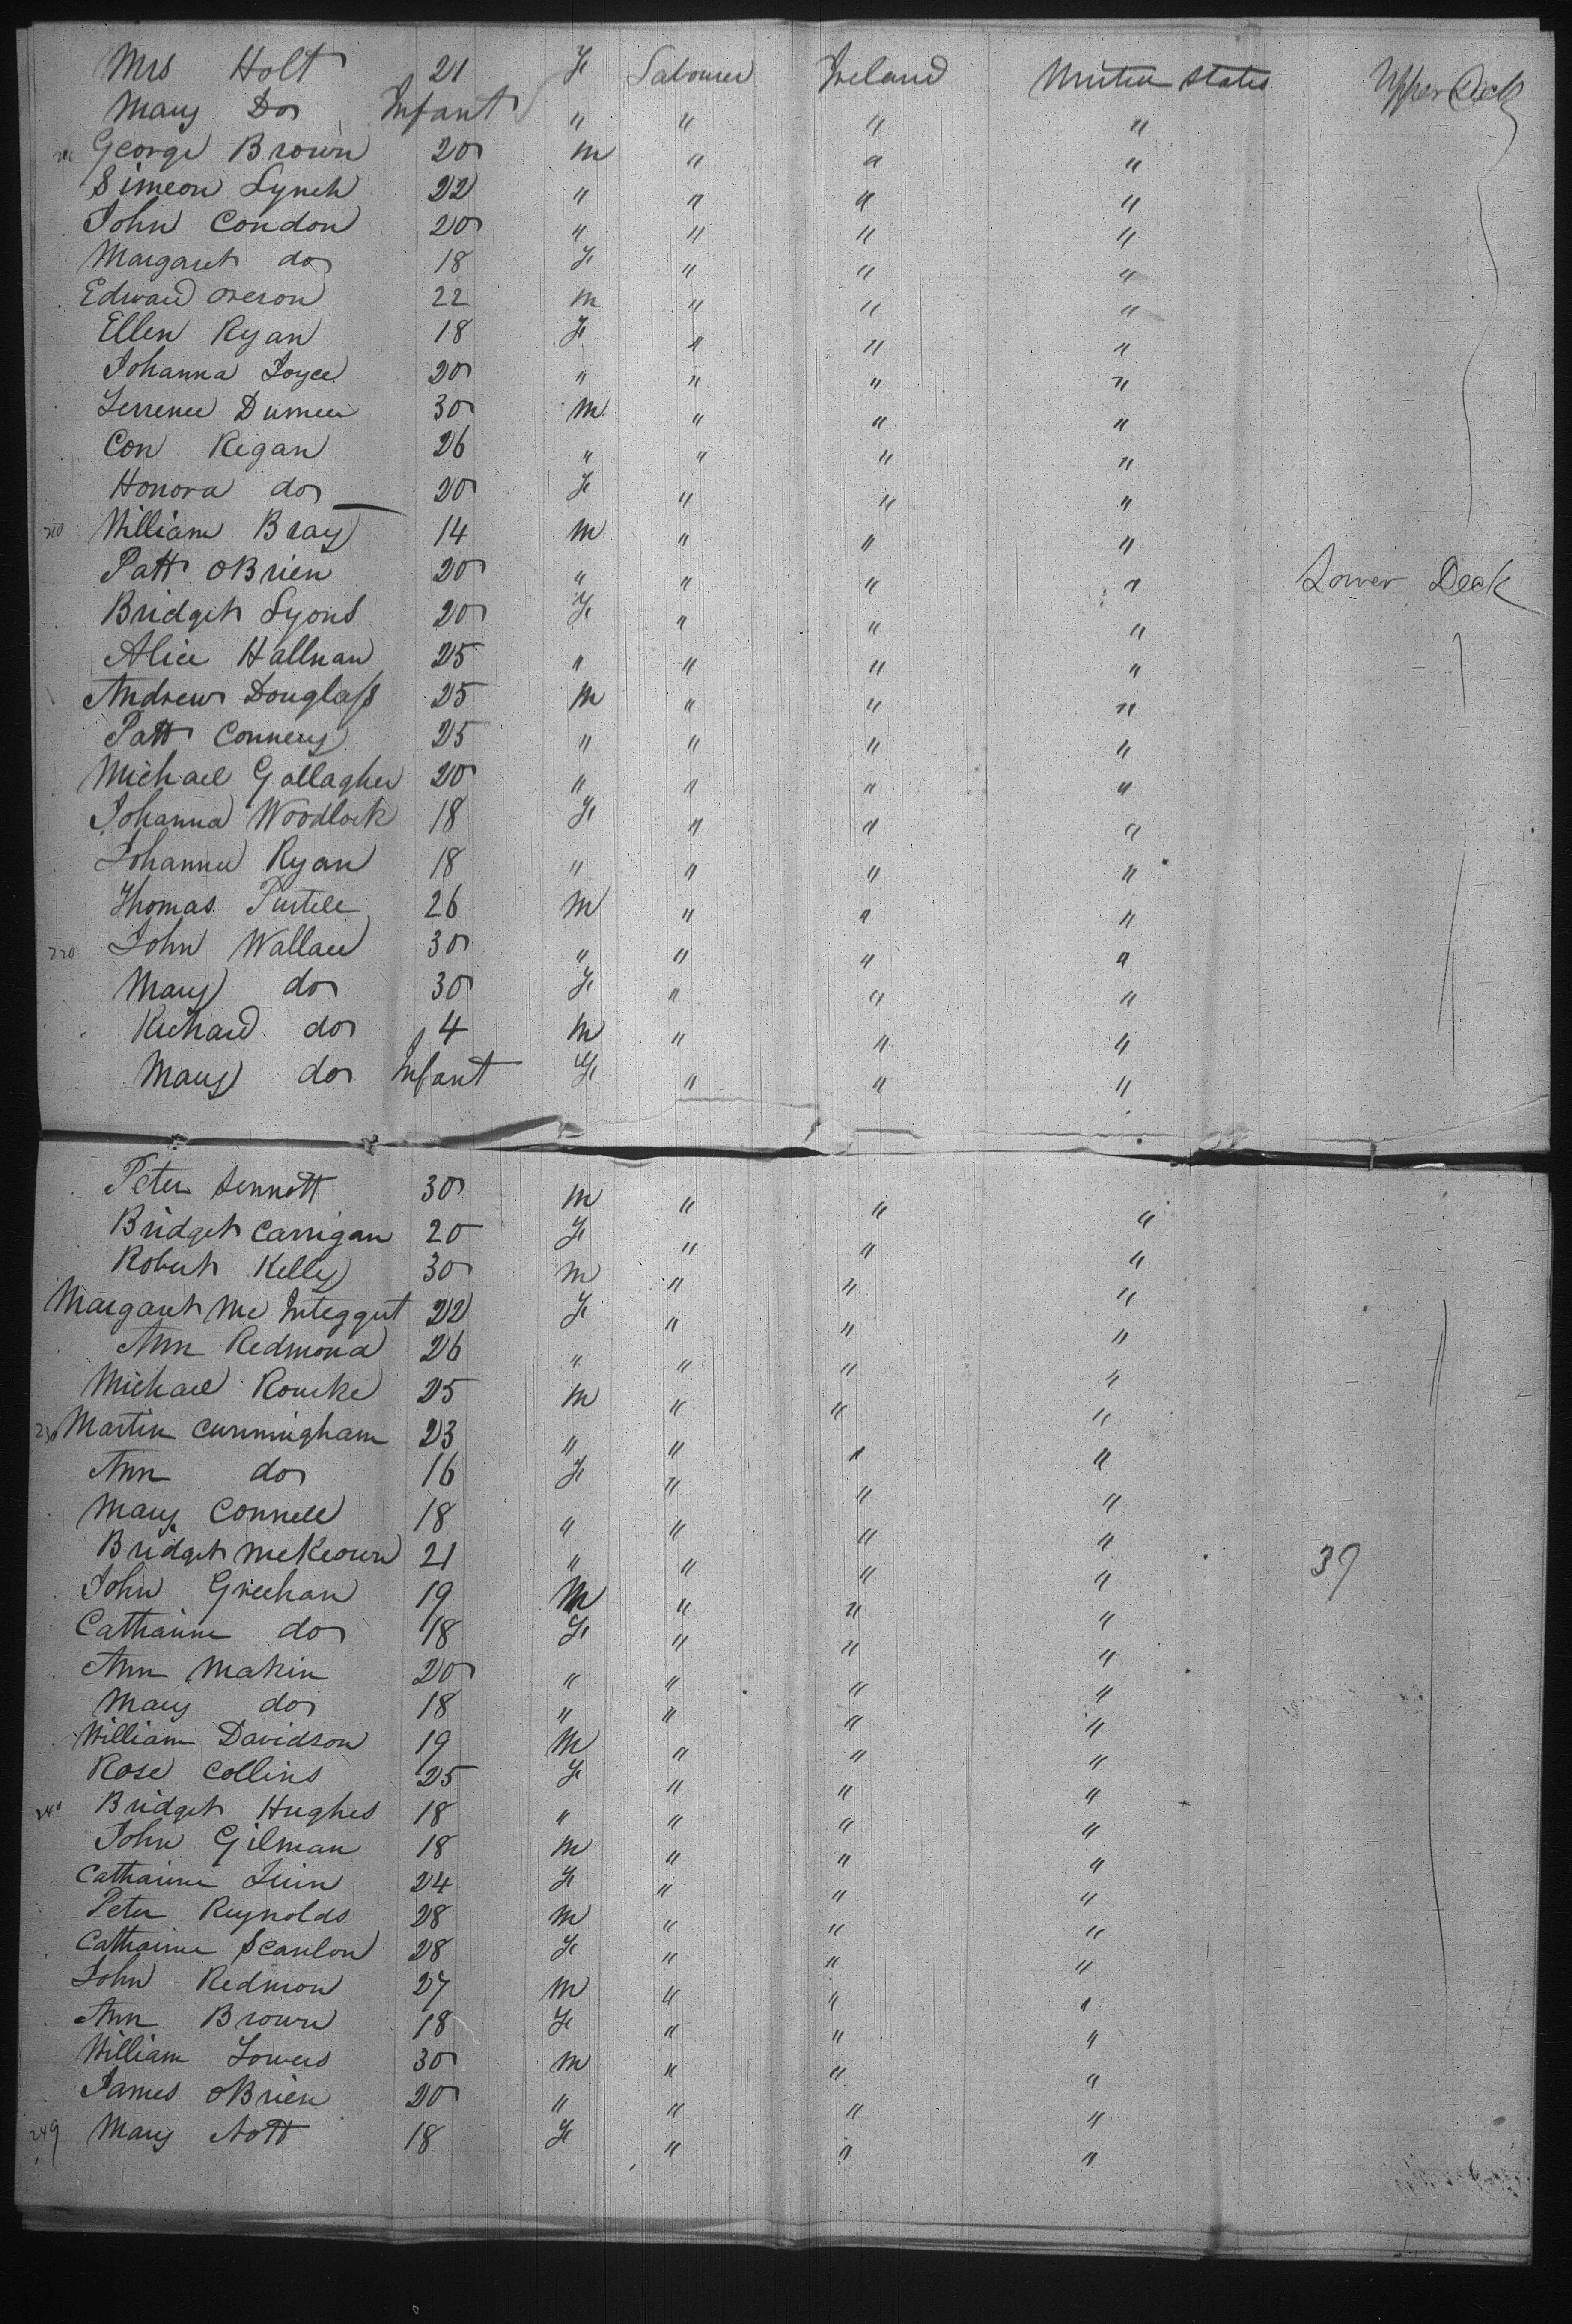 Mrs Holt 21 F Labourer Ireland United States Upper Deck
Mary Do Infant " " " "
George Brown 20 m " " "
Simeon Lynch 22 " " " "
John Condon 20 " " " "
Margaret do 18 F " " "
Edward 22 m " " "
Ellen Ryan 18 F " " "
Johanna Joyce 20 " " " "
Terrence 30 m " " "
Con Regan 26 " " " "
Honora do 20 F " " "
210 William Bray 14 m " " "
Patt OBrien 20 " " " " Lower Deck
Bridget Lyons 20 F " " "
Alice Hallnan 25 " " " "
Andrew Douglass 25 m " " "
Patt Connery 25 " " " "
Michael Gallagher 20 " " " "
Johanna Woodlock 18 F " " "
Johanna Ryan 18 " " " "
Thomas Purtell 26 m " " "
220 John Wallace 30 " " " "
Mary do 30 F " " "
Richard do 4 m " " "
Mary do Infant F " " "
Peter Sennott 30 m " " "
Bridget Carrigan 20 F " " "
Robert Kelly 30 m " " "
Margaret Mc 22 F " " "
Ann Redmond 26 " " " "
Michael Rourke 25 m " " "
230 Martin Cunningham 23 " " " "
Ann do 16 F " " "
Mary Connell 18 " " " "
Bridget McKeown 21 " " " " 39
John Greehan 19 M " " "
Catharine do 18 F " " "
Ann Makin 20 " " " "
Mary do 18 " " " "
William Davidson 19 M " " "
Rose Collins 25 F " " "
240 Bridget Hughes 18 " " " "
John Gilman 18 m " " "
Catharine 24 F " " "
Peter Reynolds 28 m " " "
Catharine Scanlon 28 F " " "
John Redmon 27 m " " "
Ann Brown 18 F " " "
William Towers 30 m " " "
James OBrien 20 " " " "
249 Mary Nott 18 F " " "